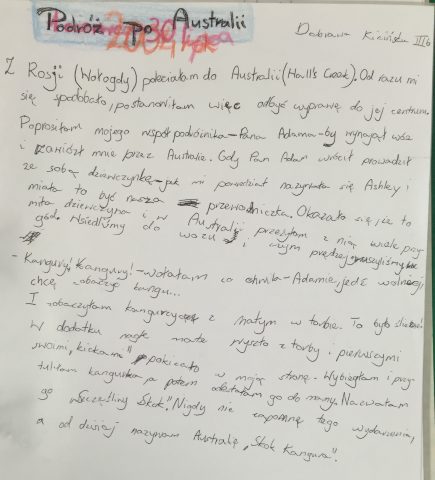 Podróż po Australii
Dobrawa Kicińska III b
Z Rosji (Wołogdy) poleciałam do Australii (Hall's Creek). Od razu mi
się spodobało, postanowiłam więc odbyć wyprawę do jej centrum.
Poprosiłam mojego współpodróżnika – Pana Adama – by wynajął wóz
i zawiózł mnie przez Australię. Gdy Pan Adam wrócił prowadził
ze sobą dziewczynkę – jak mi powiedział nazywała się Ashley i
miała to być nasza przewodniczka. Okazało się, że to
miła dziewczyna i w Australii przeżyłam z nią wiele przy-
gód. Wsiedliśmy do wozu i czym prędzej ruszyliśmy
- Kangury! Kangury! – wołałam co chwila – Adamie, jedź wolniej,
chcę zobaczyć kangu...
I zobaczyłam kangurzycę z małym w torbie. To było śliczne!
W dodatku nagle małe wyszło z torby i pierwszymi
swoimi „kickami” pokicało w moją stronę. Wybiegłam i przy-
tuliłam kangurka, a potem odesłałam go do mamy. Nazwałam
go „Szczęśliwy Skok.” Nigdy nie zapomnę tego wydarzenia,
a od dzisiaj nazywam Australię „Skok Kangura”.